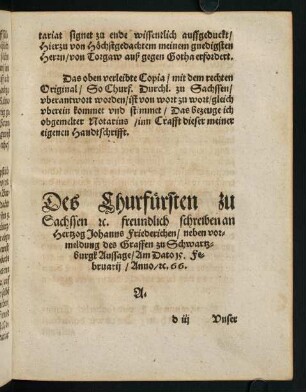 tariat signet zu ende wissentlich auffgeduckt/
Hierzu von Höchstgedachtem meinem gnedigsten
Herrn/ von Torgaw auß gegen Gotha erfordert.
Das oben verleibte Copia/ mit dem rechten
Original/ So Churf. Durchl. zu Sachssen/
vberantwort worden/ ist von wort zu wort/ gleich
vberein kommet vnd stimmet/ Das bezeuge ich
obgemelter Notarius/ inn Crafft dieser meiner
eigenen Handtschrifft.
Des Churfürsten zu
Sachssen ꝛc. freundlich schreiben an
Hertzog Johanns Friederichen/ neben vor-
meldung des Graffen zu Schwartz-
burgk Aussage/ Am Dato 15. Fe-
bruarij/ Anno/ ꝛc. 66.
A.
d iij Vnser